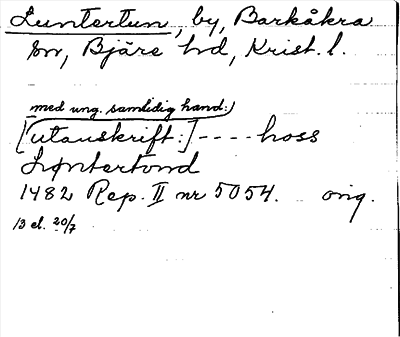 Luntertun, by, Barkåkra
sn, Bjäre hd, Krist. l.
med ung. samtidig hand:
[utanskrift:] ---- hoss
Lyntertond
1482 Rep. II nr 5054. orig.
13 el. 20/7